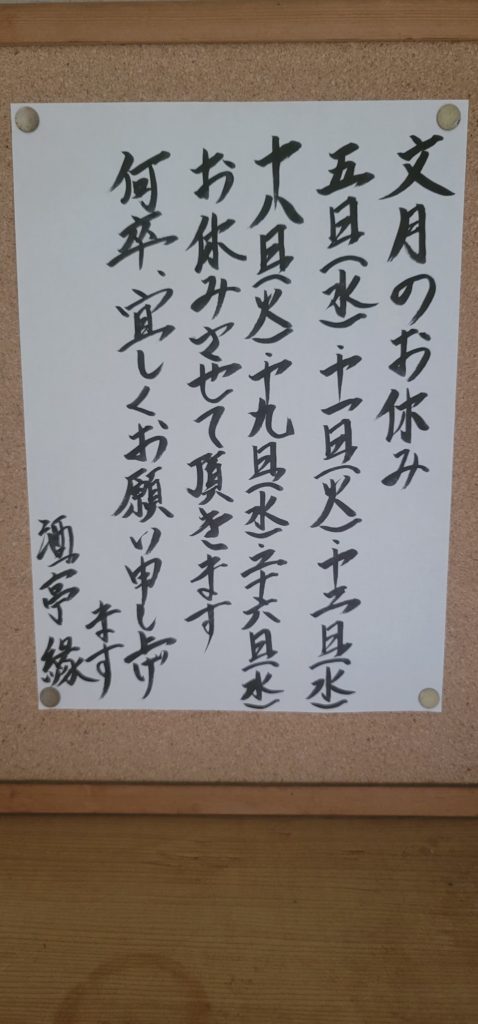 文月のお休み
五日(水)・十一日(火)・十二日(水)
十八日(火)・十九日(水)・二十六日(水)
お休みさせて頂きます
何卒、宜しくお願い申し上げ
ます
酒亭 縁